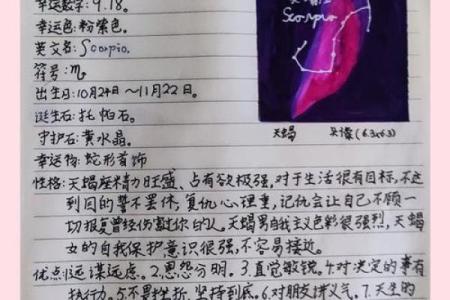 幸运数字:9.18。
幸运色:粉紫色。
英文名:Scorpio.
符号:♏
出生日:10月24日~11月22日。
诞生石:托帕石。
守护石:黄水晶。
幸运物:蛇形首饰
Scorpio
天蝎
(6.3x6.3)
性格:天蝎座精力旺盛、占有欲极强,对于生活很有目标,不达
到目的誓不罢休,复仇心理重,记仇会让自己不顾一
切报复曾经伤害过你的人。天蝎男自我主义色彩很强烈,天蝎
女的自我保护意识很强,不容易接近。
优点:1.远谋远虑。2.恩怨分明。3.直觉敏锐。4.对决定的事有
执行力。5.不畏挫折、坚持到底。6.对朋友讲义气。7.天生的